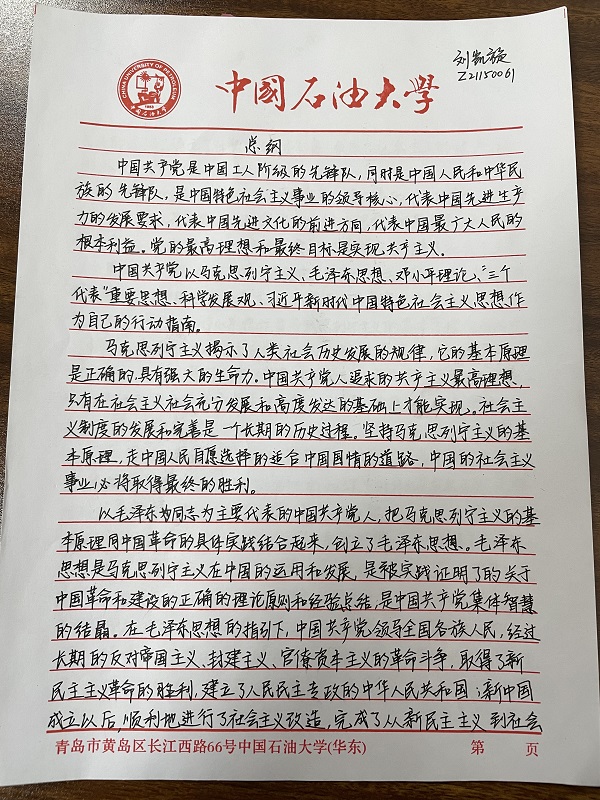 刘凯旋
Z21150061
CHINA UNIVERSITY OF PETROLEUM
1953
中国石油大学
中國石油大學
总纲
中国共产党是中国工人阶级的先锋队，同时是中国人民和中华民
族的先锋队，是中国特色社会主义事业的领导核心，代表中国先进生产
力的发展要求，代表中国先进文化的前进方向，代表中国最广大人民的
根本利益。党的最高理想和最终目标是实现共产主义。
中国共产党以马克思列宁主义、毛泽东思想、邓小平理论、“三个
代表”重要思想、科学发展观、习近平新时代中国特色社会主义思想作
为自己的行动指南。
马克思列宁主义揭示了人类社会历史发展的规律，它的基本原理
是正确的，具有强大的生命力。中国共产党人追求的共产主义最高理想，
只有在社会主义社会充分发展和高度发达的基础上才能实现。社会主
义制度的发展和完善是一个长期的历史过程。坚持马克思列宁主义的基
本原理，走中国人民自愿选择的适合中国国情的道路，中国的社会主义
事业必将取得最终的胜利。
以毛泽东为同志为主要代表的中国共产党人，把马克思列宁主义的基
本原理同中国革命的具体实践结合起来，创立了毛泽东思想。毛泽东
思想是马克思列宁主义在中国的运用和发展，是被实践证明了的关于
中国革命和建设的正确的理论原则和经验总结，是中国共产党集体智慧
的结晶。在毛泽东思想的指引下，中国共产党领导全国各族人民，经过
长期的反对帝国主义、封建主义、官僚资本主义的革命斗争，取得了新
民主主义革命的胜利，建立了人民民主专政的中华人民共和国；新中国
成立以后，顺利地进行了社会主义改造，完成了从新民主主义到社会
青岛市黄岛区长江西路66号中国石油大学(华东)
第 页